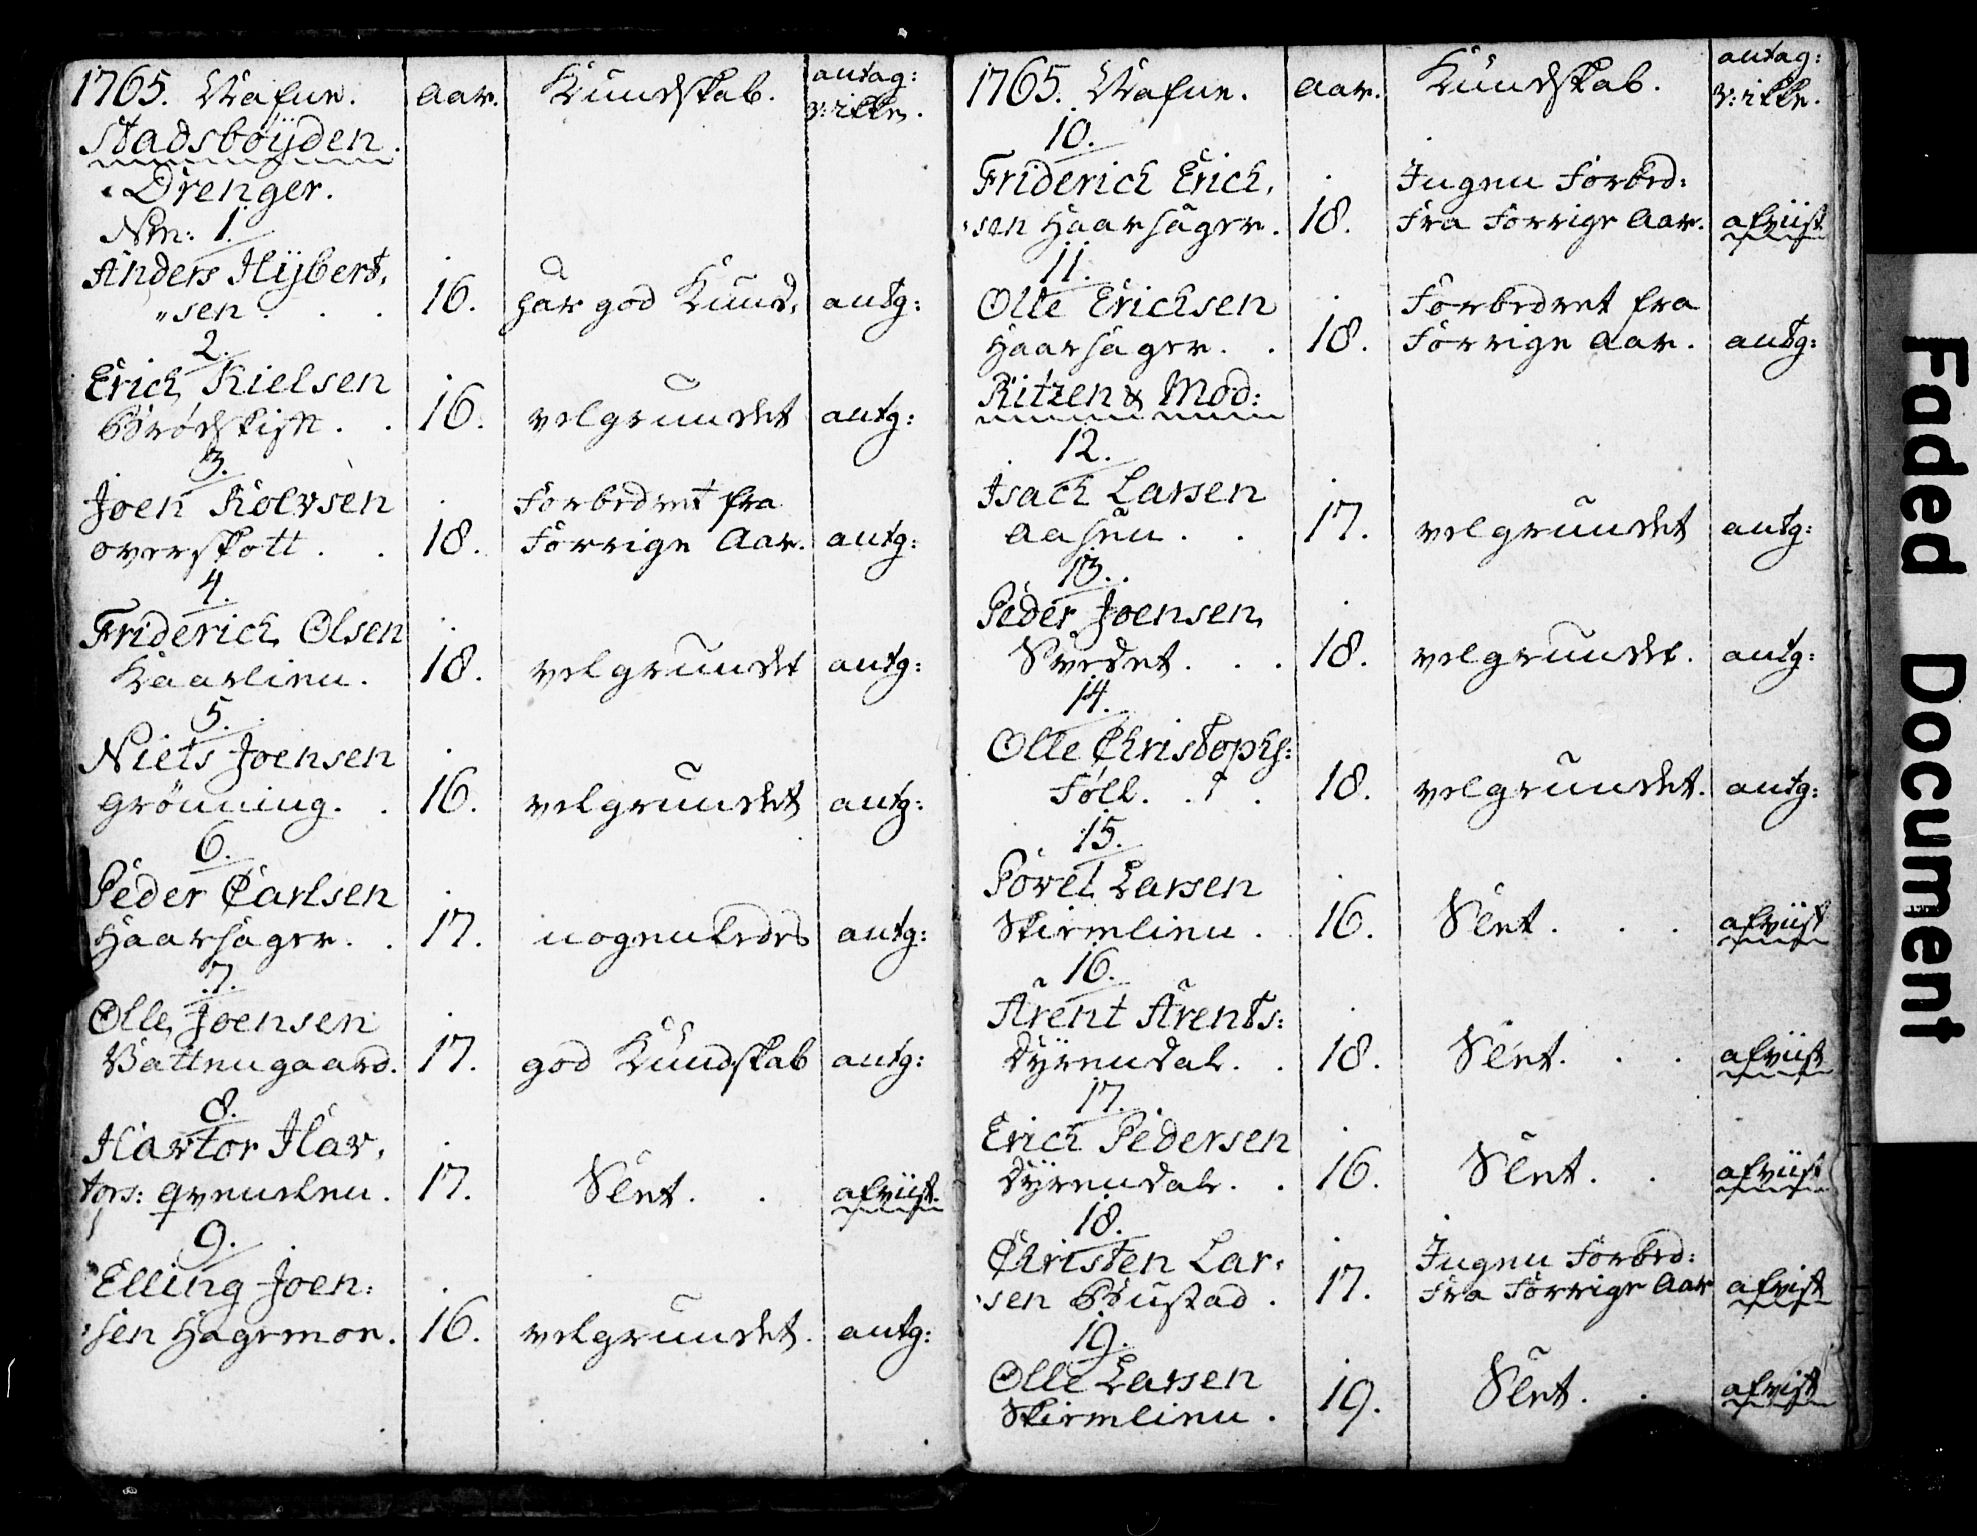 1765. Nafne. Aar. Kundskab. antag:
v: ikke.
Stadsbøyden.
Drenger.
Nm: 1.
Anders Hybert,
"sen . . . 16. har god Kund, antg:
2.
Erich Kielsen
Brødskift . . 16. velgrundet antg:
3.
Joen Rolvsen Forbedret fra
overskott . . 18. Forrige Aar. antg:
4.
Friderich Olsen
Kaarlien. 18. velgrundet antg:
5.
Niels Joensen
Grønning. . 16. velgrundet antg:
6.
Peder Carlsen
Haarsager. . 17. nogenledes antg:
7.
Olle Joensen
Vattengaard. 17. god Kundskab antg:
8.
Havtor Hav,
tors: Qvenden. 17. Slet. . afviist.
9.
Elling Joen:
sen Hagemoe. 16. velgrundet. antg:
1765. Nafne. Aar. Kundskab. antag:
v: ikke.
10.
Friderich Erich, Ingen Forbed:
sen Haarsager. 18. Fra Forrige Aar. afviist
11.
Olle Erichsen Forbedret fra
Haarsager. . 18. Forrige Aar. antg:
Ritzen & Mod:
12.
Isach Larsen
Aasen . . 17. velgrundet antg:
13.
Peder Joensen
Svedet. . . 18. velgrundet. antg:
14.
Olle Christophs:
Føll. . . 18. velgrundet. antg:
15.
Povel Larsen
Skirmlien . 16. Slet. . . afviist
16.
Arent Arents:
Dyrendal. . 18. Slet. . . afviist
17.
Erich Pedersen
Dyrendal. . 16. Slet. . afviist
18.
Christen Lar: Ingen Forbed:
sen Bustad . 17. Fra Forrige Aar afvist
19.
Olle Larsen
Skirmlien . 19. Slet. . afvist
Faded Document